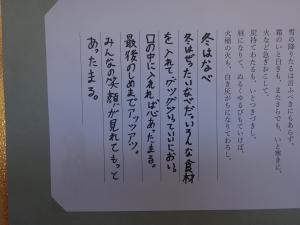 雪の降りたるは言ふべきにもあらず、
霜のいと白きも、またさらでも、いと寒きに、
火など急ぎおこして、
炭持てわたるも、いとつきづきし。
昼になりて、ぬるくゆるびもていけば、
火桶の火も、白き灰がちになりてわろし。
冬はなべ
冬はぜったいなべだ。いろんな食材
を入れて、グツグツいっていいにおい。
口の中に入れれば心あったまる。
最後のしめまでアツアツ。
みんなの笑顔が見れてもっと
あったまる。